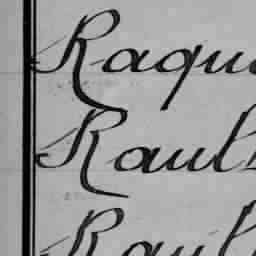 Raqu
Raul
Raul